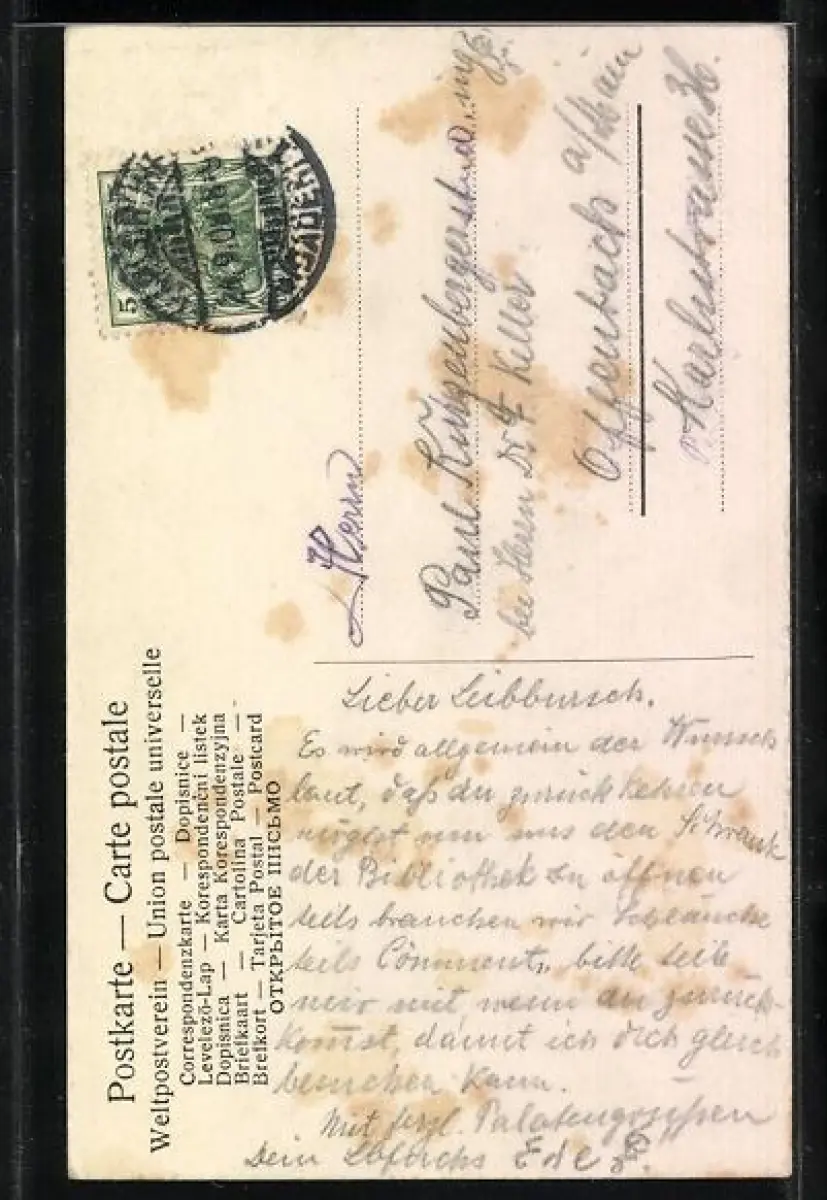 Postkarte — Carte postale
Weltpostverein — Union postale universelle
Correspondenzkarte — Dopisnice —
Levelezö-Lap — Korespondenční listek
Dopisnica — Karta Korespondenzyjna
Briefkaart — Cartolina Postale —
Brefkort — Tarjeta Postal — Postcard
ОТКРЫТОЕ ПИСЬМО
5
Herrn
Paul
bei Herrn Dr Keller
Offenbach a/Main
Karlstrasse 36.
Lieber Leibbursch.
Es wird allgemein der Wunsch
laut, daß du zurückkehren
mögest um uns den Schrank
der Bibliothek zu öffnen
teils brauchen wir
teils Comment, bitte teile
mir mit wenn du zurück-
kommst, damit ich dich gleich
besuchen kann.
Mit herzl.
Dein